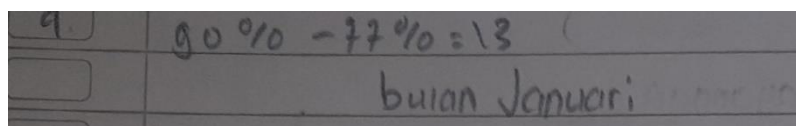 9.
90% - 77% = 13
bulan Januari